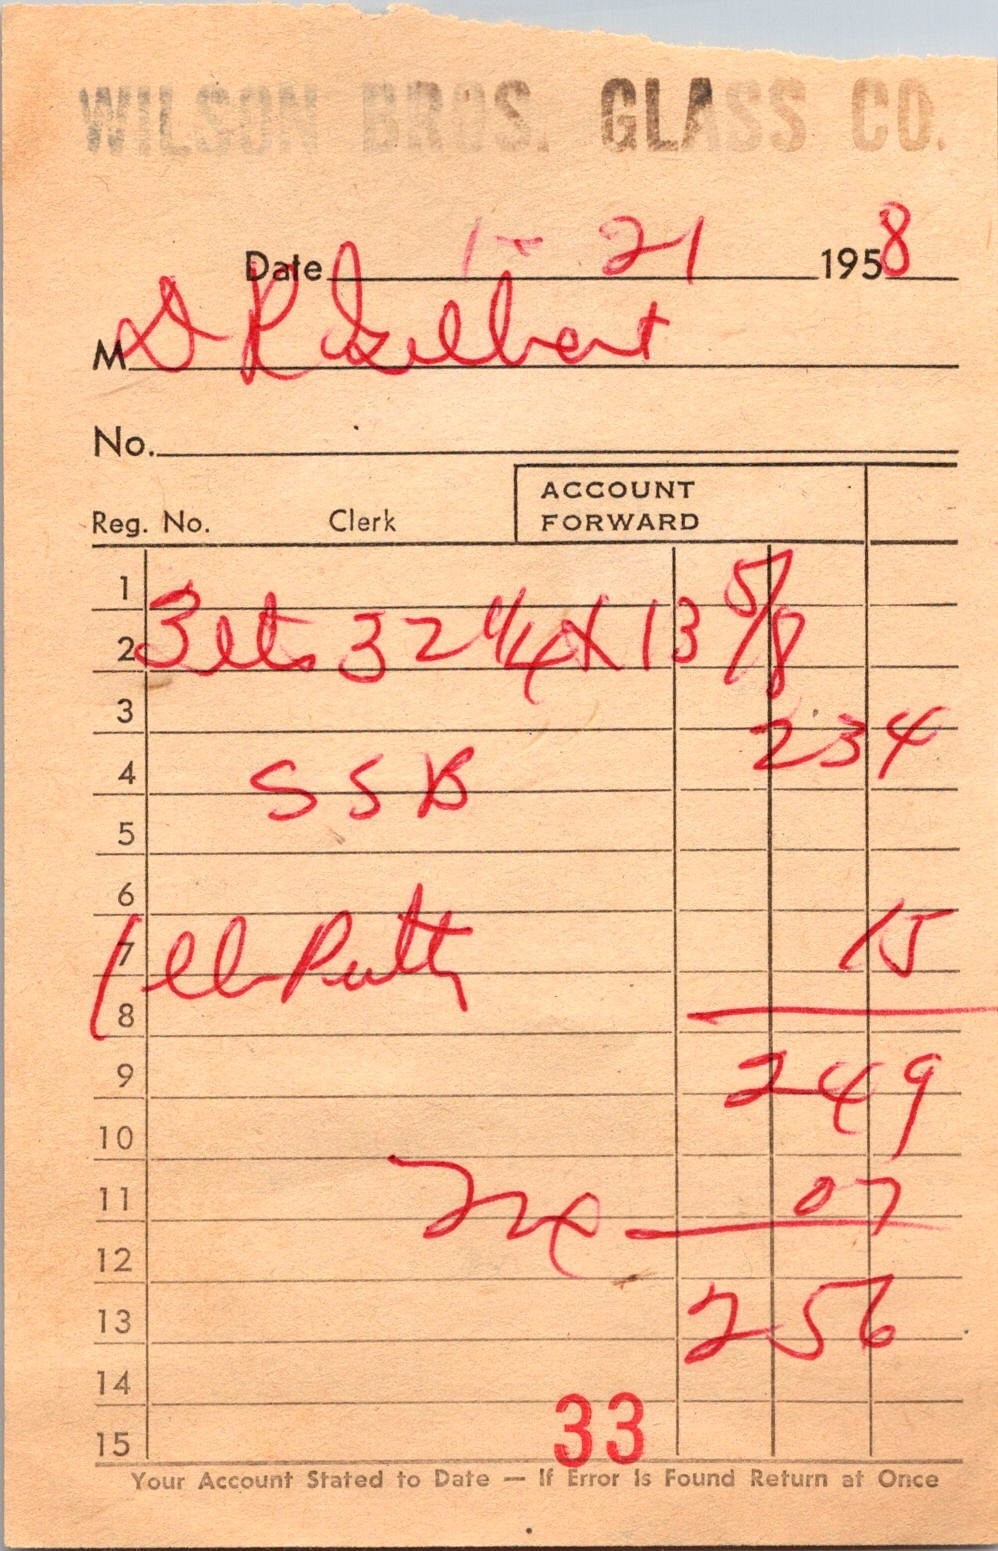 WILSON BROS. GLASS CO.
Date 1 - 21 1958
M D R Gilbert
No.
Reg. No. Clerk ACCOUNT FORWARD
1
2 3 lts 32 1/4 X 13 5/8
3 234
4 S S B
5
6
7 1 lb Putty 15
8
9 249
10
11 Tax 07
12
13 256
14
15 33
Your Account Stated to Date — If Error Is Found Return at Once